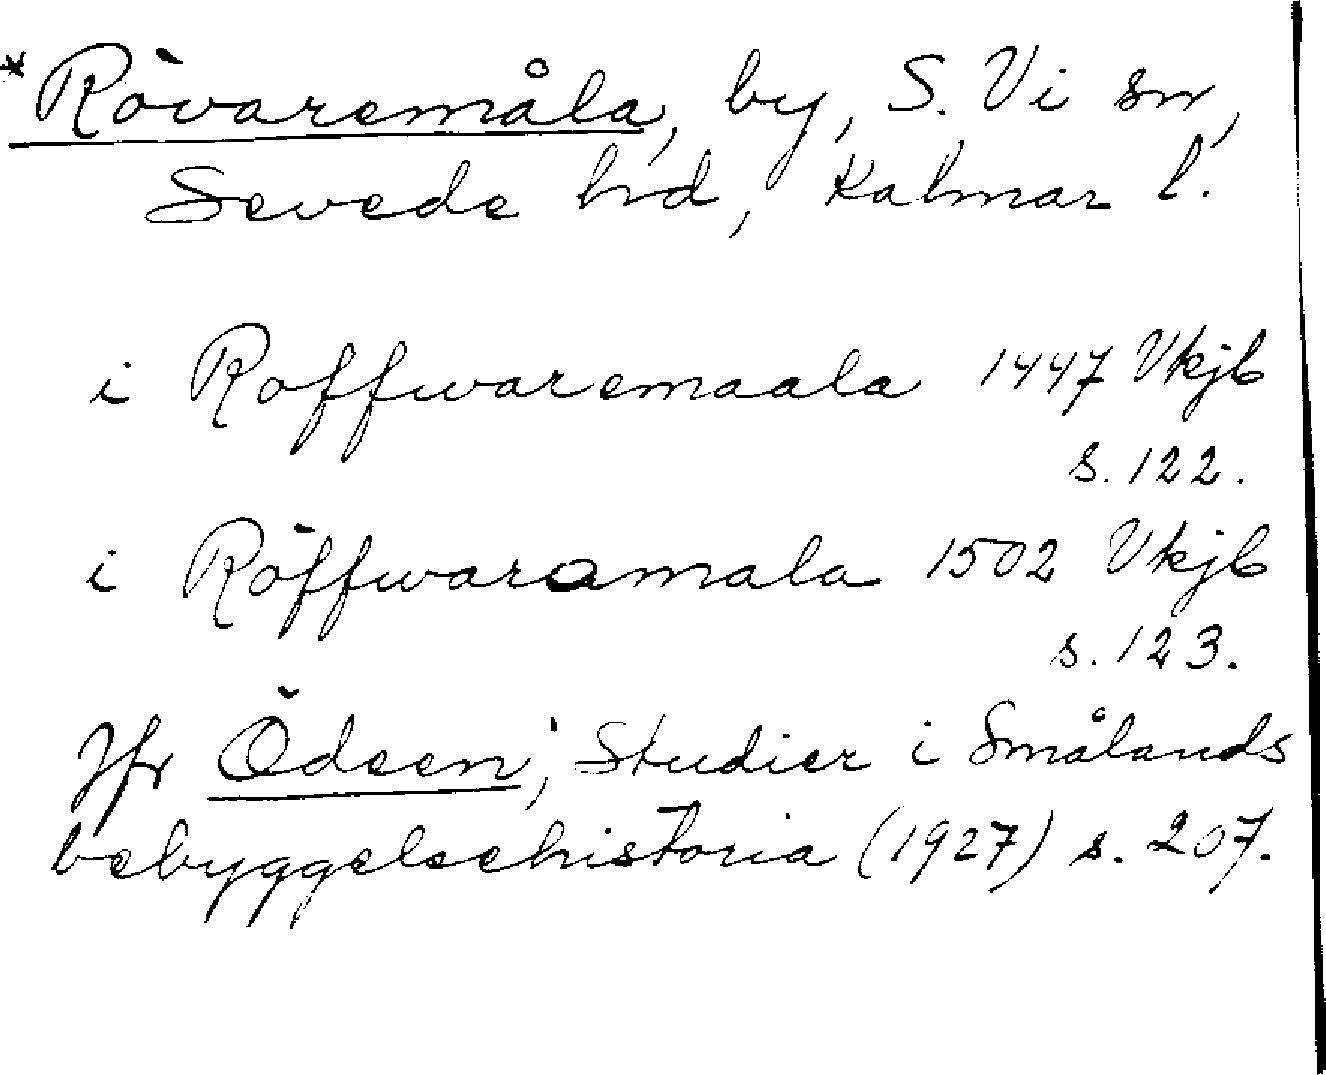 *Rövaremåla, by, S. Vi sn,
Sevede hd, Kalmar l.
i Roffwaremaala 1447 Vkjb
s. 122.
i Röffwaramala 1502 Vkjb
s. 123.
Jfr Ödeen, Studier i Smålands
bebyggelsehistoria (1927) s. 207.